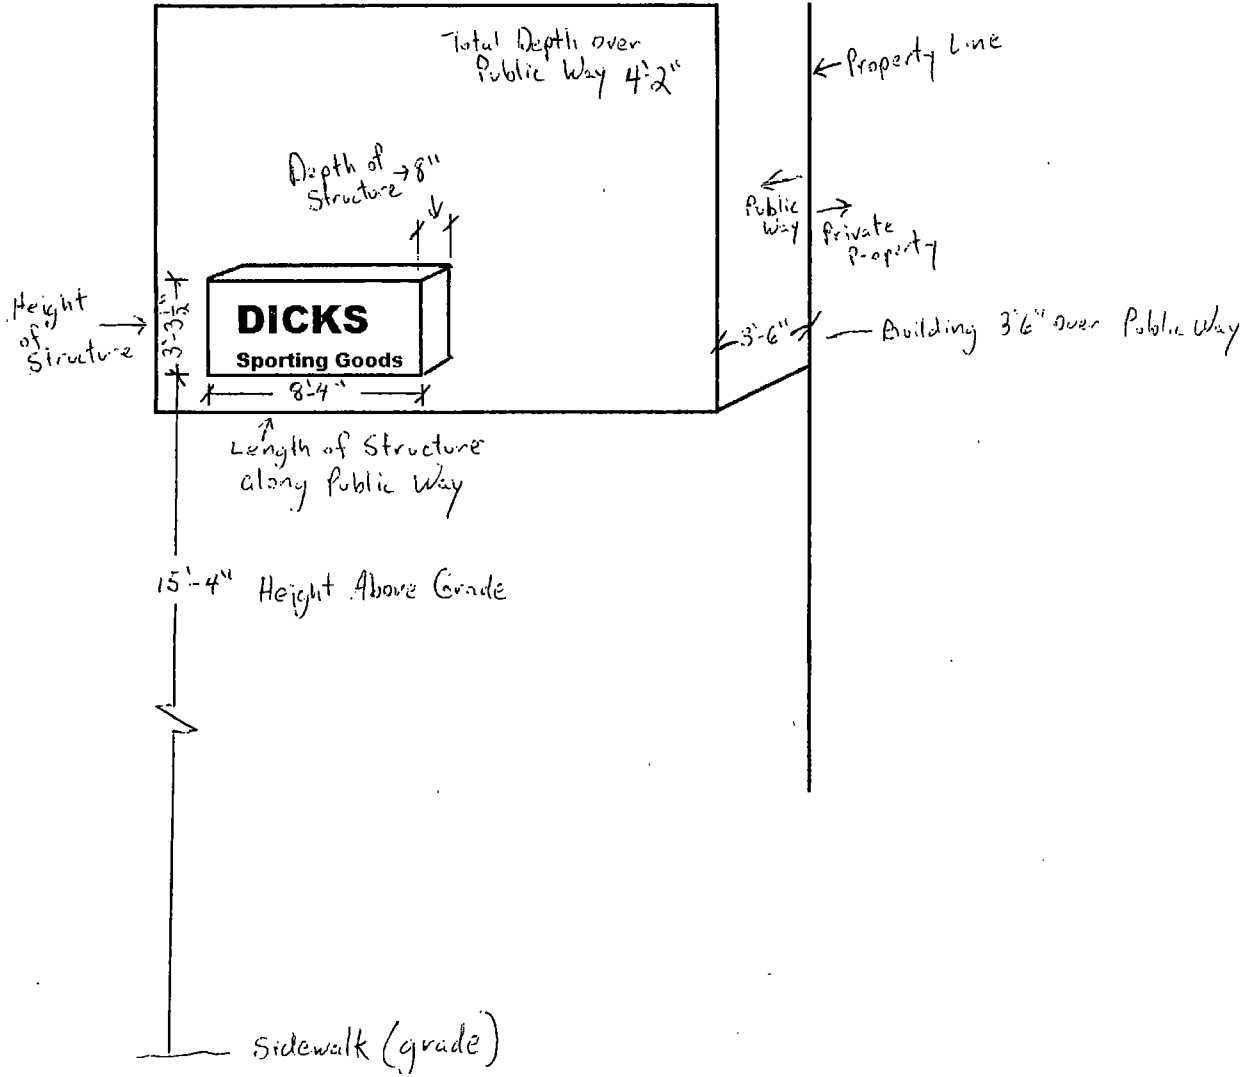 Total Depth over
Public Way 4'-2"
← Property Line
Depth of → 8"
Structure
Public
Way
Private
Property
Height
of
Structure
3'-3½"
DICKS
Sporting Goods
8'-4"
3'-6"
Building 3'6" over Public Way
Length of Structure
along Public Way
15'-4" Height Above Grade
Sidewalk (grade)